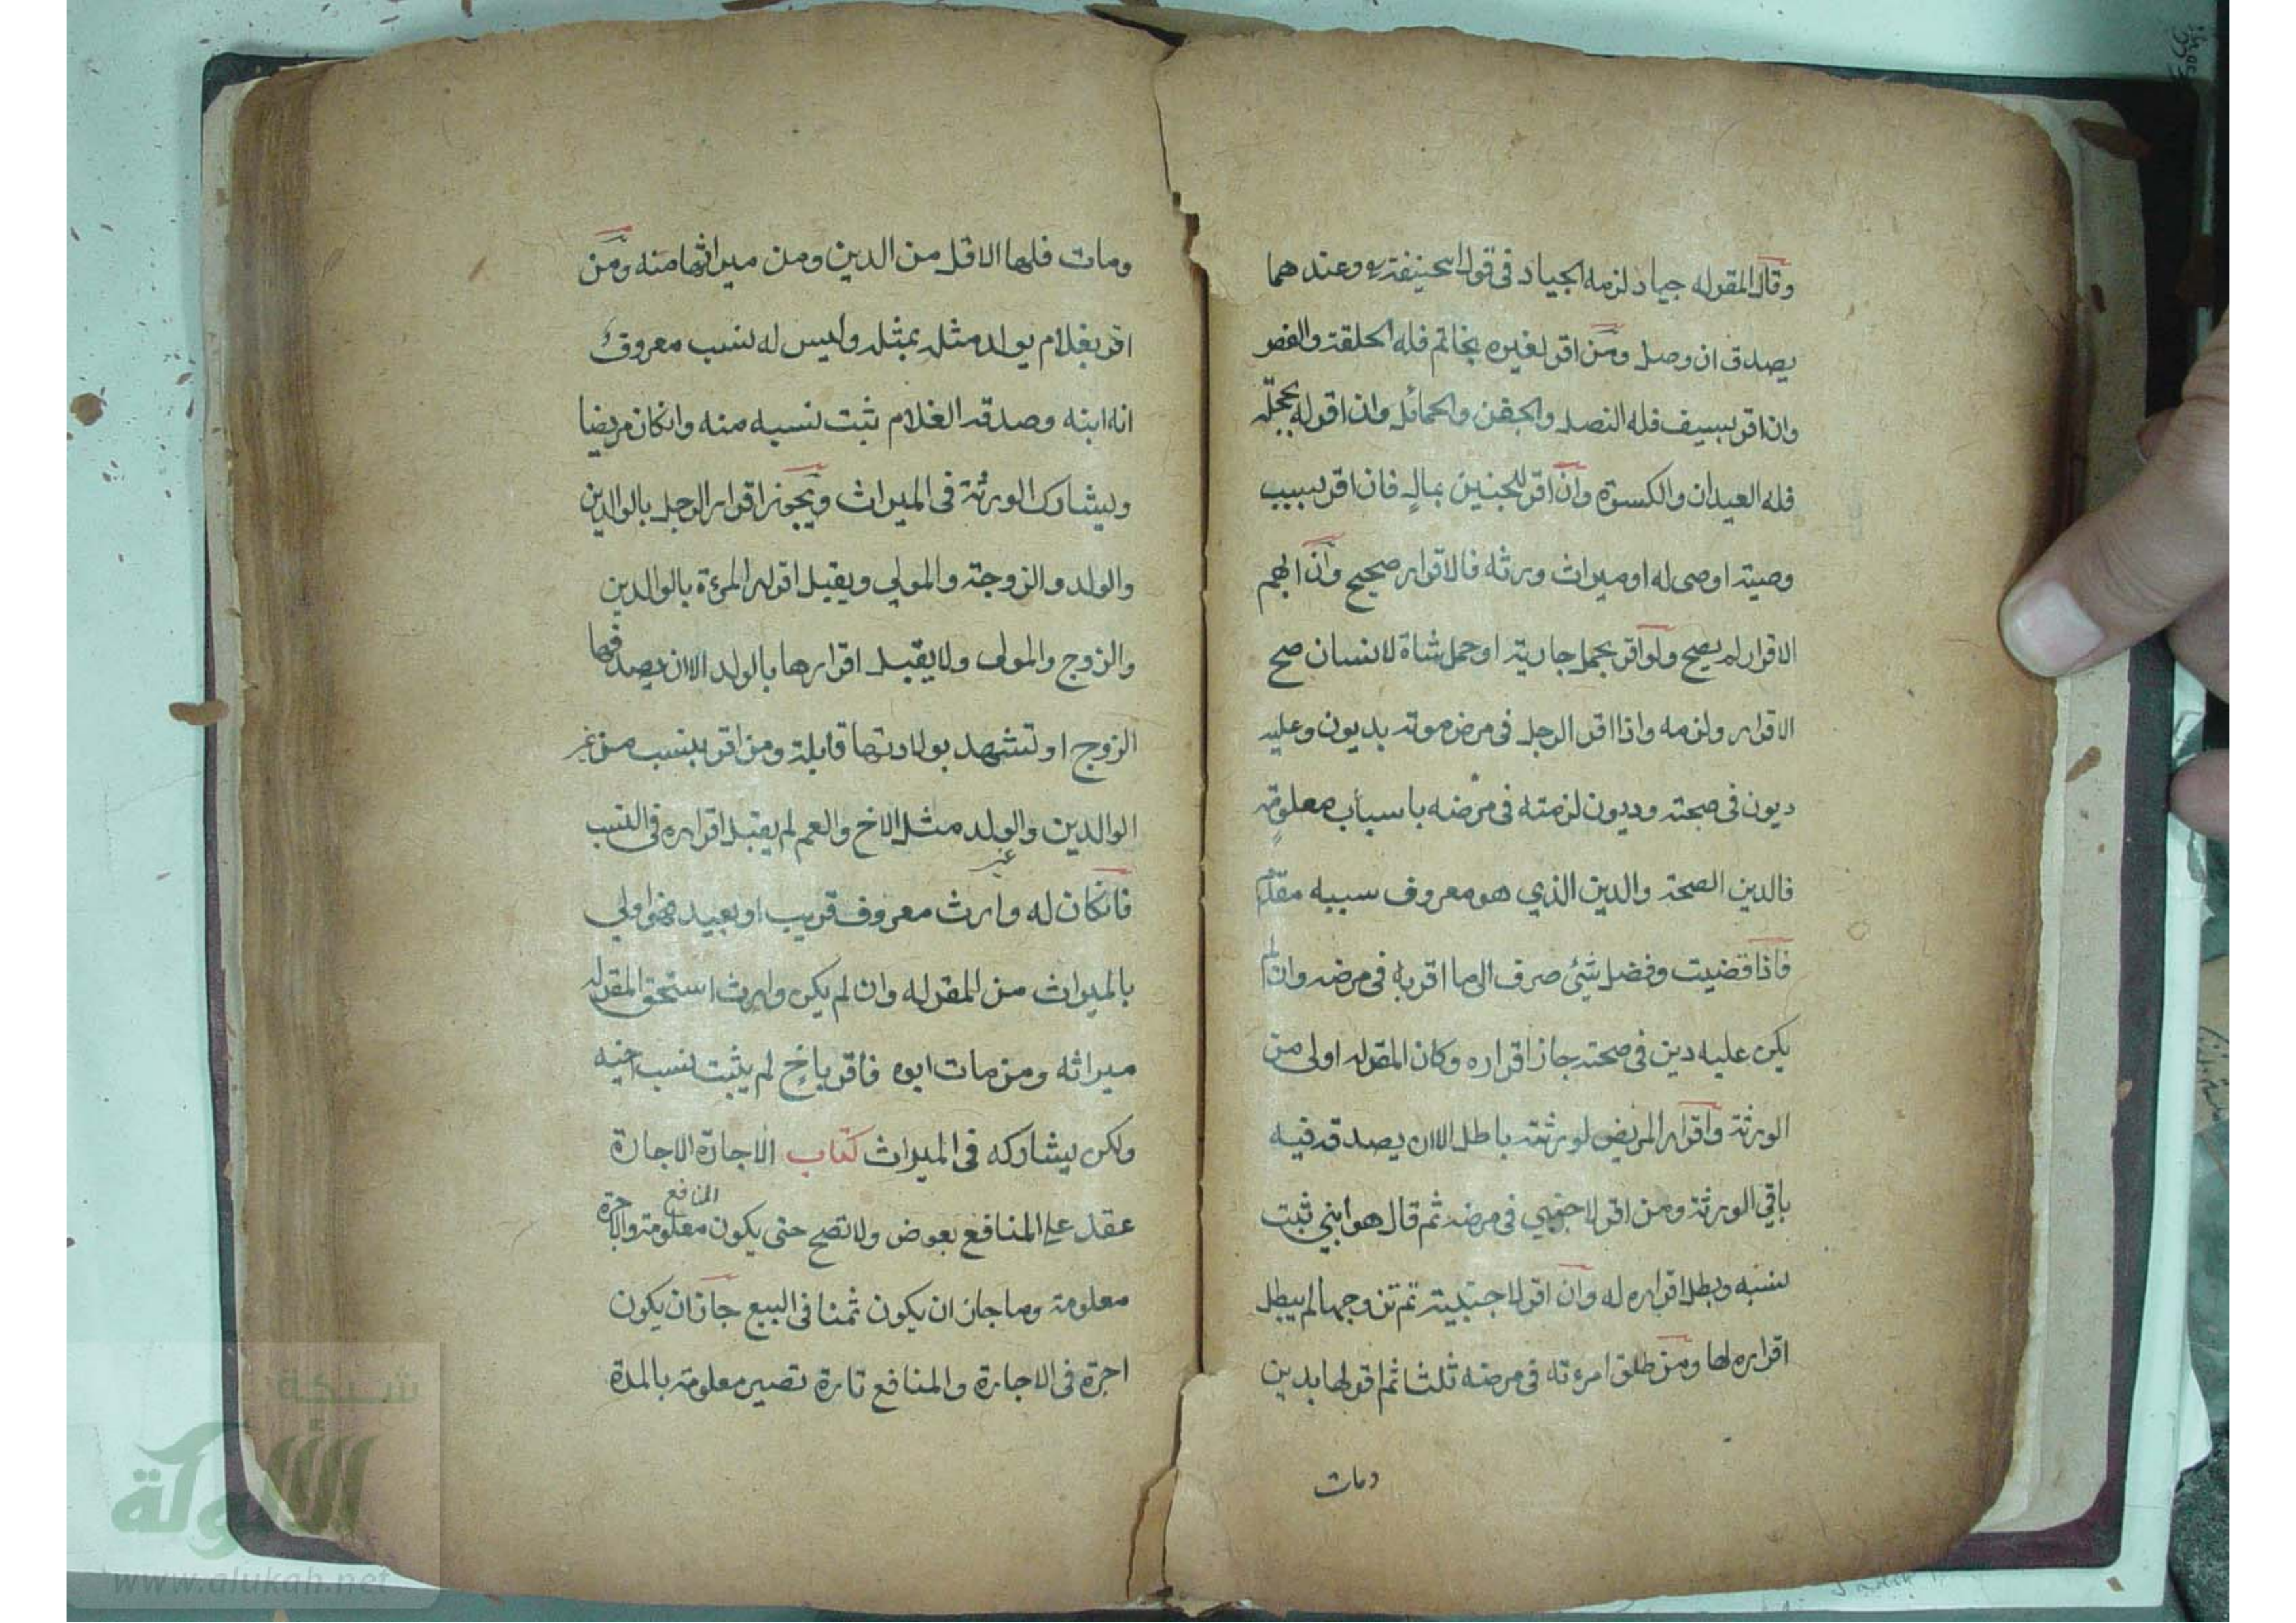 وقال المقر له جياد لزمه الجياد في قول ابيحنيفة رح وعندهما
يصدق ان وصل ومن اقر لغيره بخاتم فله الحلقة والفص
وان اقر بسيف فله النصل والجفن والحمائل وان اقر له بحجلة
فله العيدان والكسوة وان اقر للجنين بمال فان اقر بسبب
وصية اوصى له او ميراث ورثه فالاقرار صحيح وان ابهم
الاقرار لم يصح ولو اقر بحمل جارية او حمل شاة لانسان صح
الاقرار ولزمه واذا اقر الرجل في مرض موته بديون وعليه
ديون في صحته وديون لزمته في مرضه باسباب معلومة
فالدين الصحة والدين الذي هو معروف سببه مقدم
فاذا قضيت وفضل شيئ صرف الى ما اقر به في مرضه وان لم
يكن عليه دين في صحته جاز اقراره وكان المقر له اولى من
الورثة واقرار المريض لورثته باطل الا ان يصدقه فيه
باقي الورثة ومن اقر لاجنبي في مرضه ثم قال هو ابني ثبت
نسبه وبطل اقراره له وان اقر لاجنبية ثم تزوجها لم يبطل
اقراره لها ومن طلق امرءته في مرضه ثلثا ثم اقر لها بدين
ومات
ومات فلها الاقل من الدين ومن ميراثها منه ومن
اقر بغلام يولد مثله بمثله وليس له نسب معروف
انه ابنه وصدقه الغلام ثبت نسبه منه وانكان مريضا
ويشارك الورثة في الميراث ويجوز اقرار الرجل بالوالدين
والولد والزوجة والمولي ويقبل اقرار المرءة بالوالدين
والزوج والمولى ولا يقبل اقرارها بالولد الا ان يصدقها فيها
الزوج او تشهد بولادتها قابلة ومن اقر بنسب من غير
الوالدين والولد مثل الاخ والعم لم يقبل اقراره في النسب
فانكان له وارث معروف قريب او بعيد فهو اولي
بالميراث من المقر له وان لم يكن وارث استحق المقر له
ميراثه ومن مات ابوه فاقر باخ لم يثبت نسب اخيه
ولكن يشاركه في الميراث كتاب الاجارة الاجارة
عقد على المنافع بعوض ولا تصح حتى يكون المنافع معلومة والاجرة
معلومة وما جاز ان يكون ثمنا في البيع جاز ان يكون
اجرة في الاجارة والمنافع تارة تصير معلومة بالمدة
شبكة
الألوكة
www.alukah.net